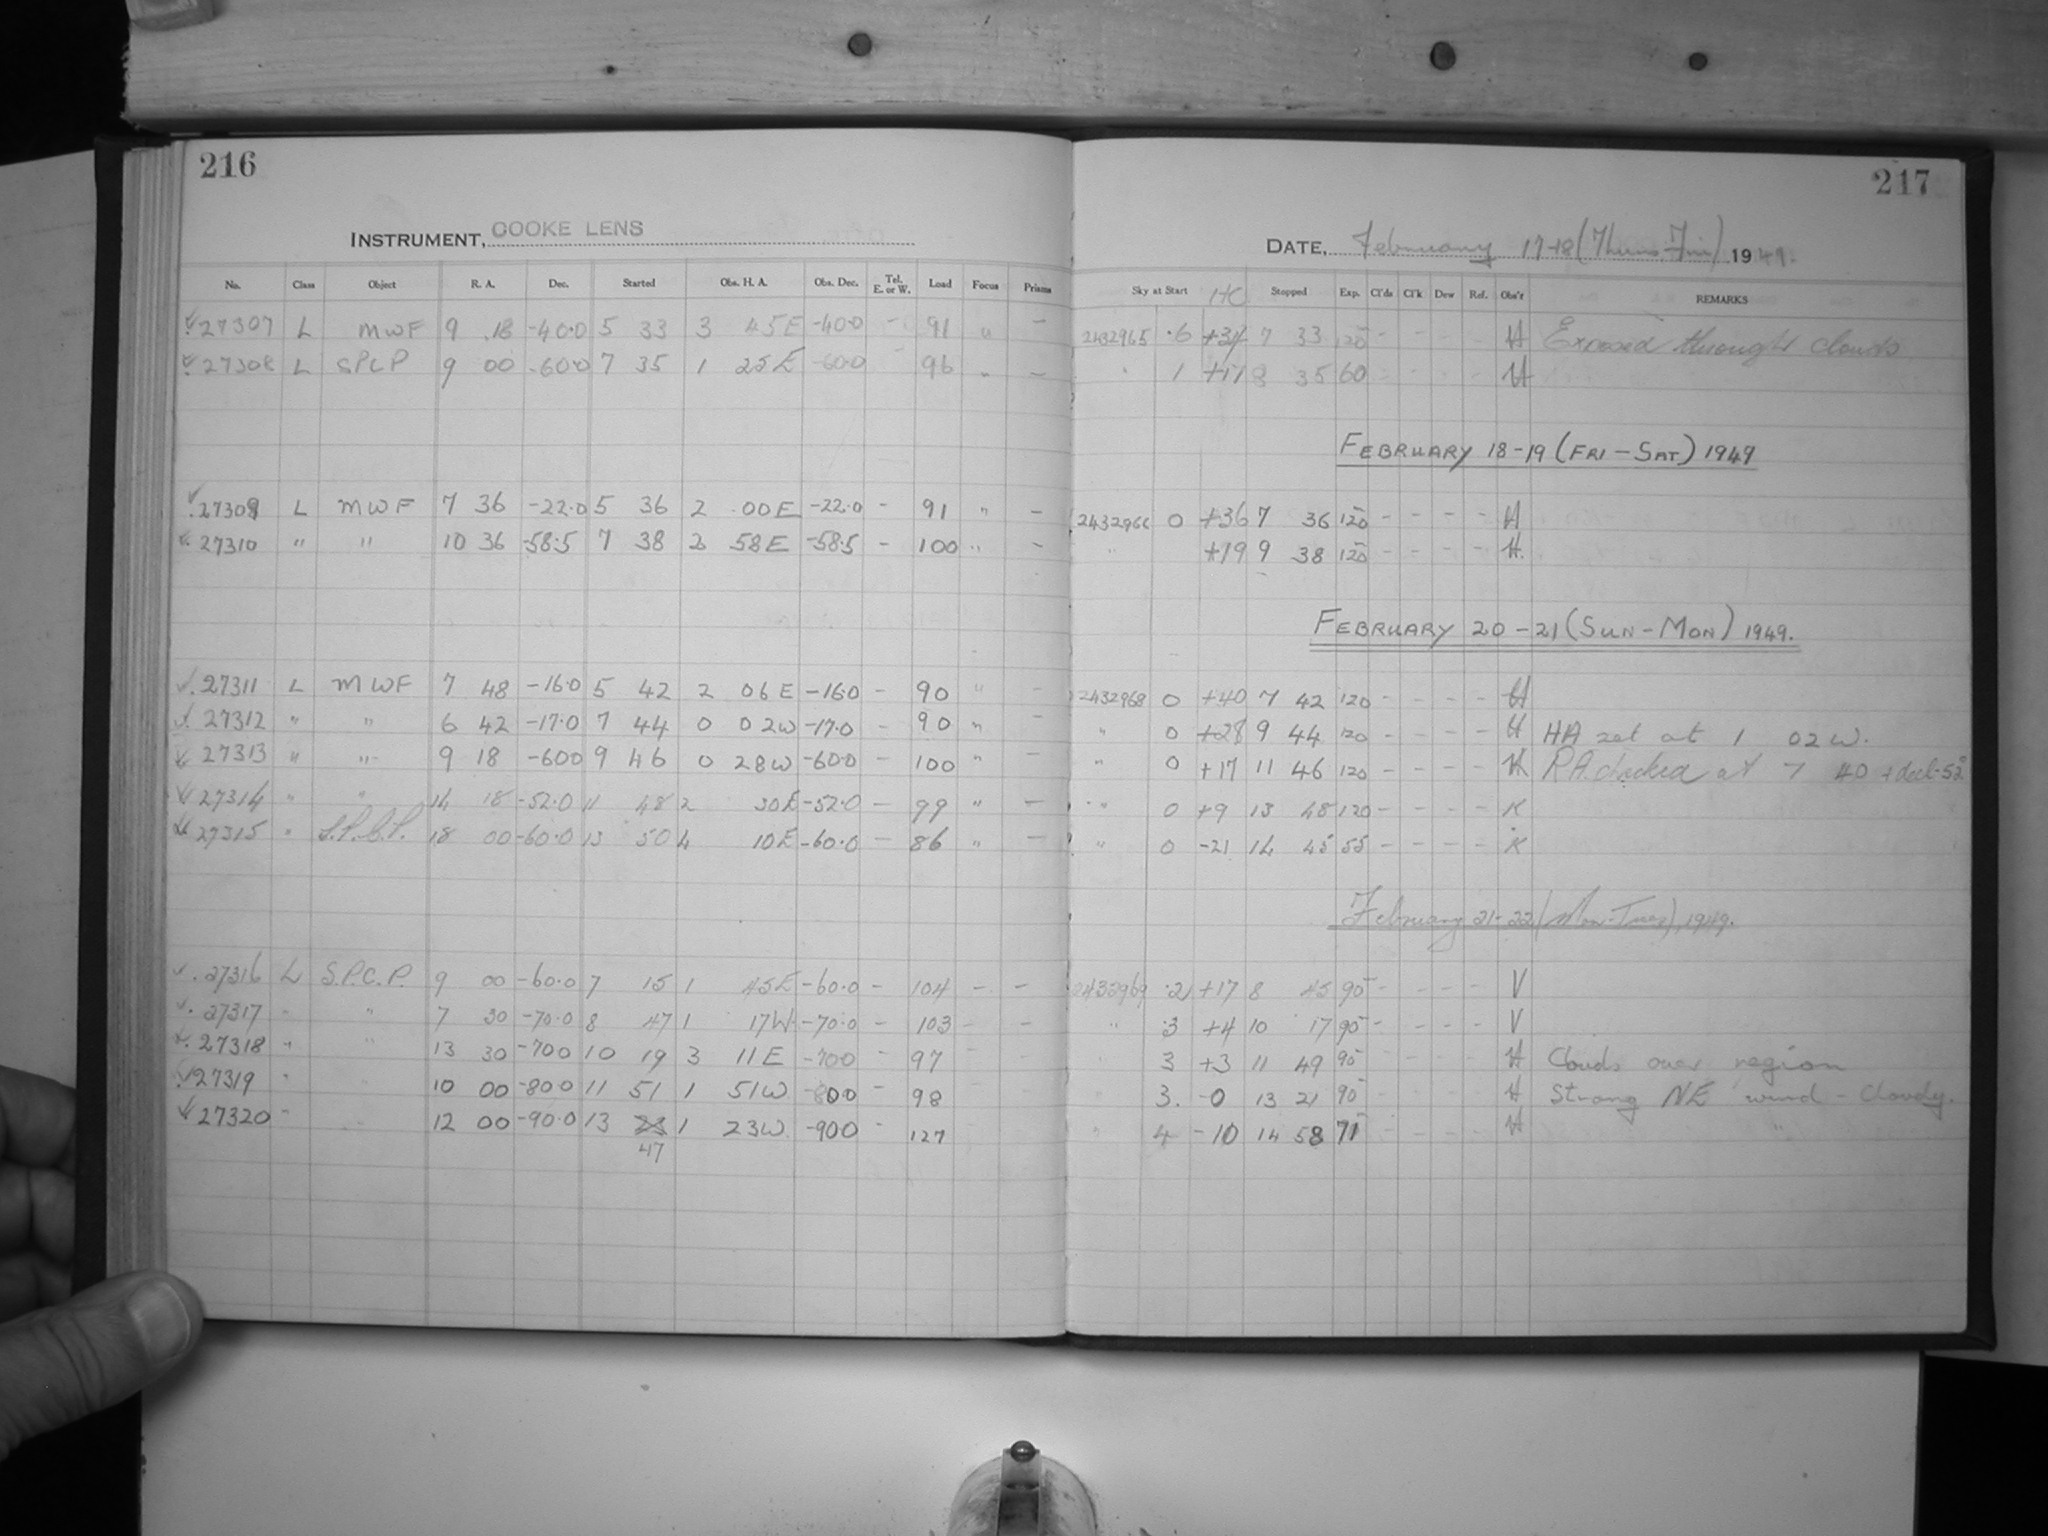 216
INSTRUMENT, COOKE LENS
No. Class Object R. A. Dec. Started Obs. H. A. Obs. Dec. Tel. E. or W. Load Focus Prisms
27307 L MWF 9 18 -40.0 5 33 3 45E -40.0 - 91 " -
27308 L SPCP 9 00 -60.0 7 35 1 25E -60.0 96 " -
27309 L MWF 7 36 -22.0 5 36 2 00E -22.0 - 91 " -
27310 " " 10 36 -58.5 7 38 2 58E -58.5 - 100 " -
27311 L MWF 7 48 -16.0 5 42 2 06E -16.0 - 90 " -
27312 " " 6 42 -17.0 7 44 0 02W -17.0 - 90 " -
27313 " " 9 18 -60.0 9 46 0 28W -60.0 - 100 " -
27314 " " 14 18 -52.0 11 48 2 30E -52.0 - 99 " -
27315 " S.P.C.P. 18 00 -60.0 13 50 4 10E -60.0 - 86 " -
27316 L S.P.C.P. 9 00 -60.0 7 15 1 45E -60.0 - 104 - -
27317 " " 7 30 -70.0 8 47 1 17W -70.0 - 103 - -
27318 " " 13 30 -70.0 10 19 3 11E -70.0 - 97
27319 " 10 00 -80.0 11 51 1 51W -80.0 - 98
27320 " 12 00 -90.0 13 1 23W -90.0 - 127
47
217
DATE, February 17-18 (Thurs-Fri) 1949.
Sky at Start HC Stopped Exp. Cl'ds Cl'k Dew Ref. Obs'r REMARKS
2432965 .6 +34 7 33 120 - - - - H Exposed through clouds
" 1 +17 8 35 60 - - - - H
FEBRUARY 18-19 (FRI-SAT) 1949
2432966 0 +36 7 36 120 - - - - H
" +19 9 38 120 - - - - H.
FEBRUARY 20-21 (SUN-MON) 1949.
2432968 0 +40 7 42 120 - - - - H
" 0 +28 9 44 120 - - - - H HA set at 1 02W.
" 0 +17 11 46 120 - - - - H RA checked at 7 40 + decl -52
" 0 +9 13 48 120 - - - - K
" 0 -21 14 45 55 - - - - K
February 21-22 (Mon-Tues), 1949.
2432969 .2 +17 8 45 90 - - - - V
" .3 +4 10 17 90 - - - - V
3 +3 11 49 90 - - - - H Clouds over region
3. -0 13 21 90 - - - - H Strong NE wind - Cloudy.
" 4 -10 14 58 71 - - - - H "